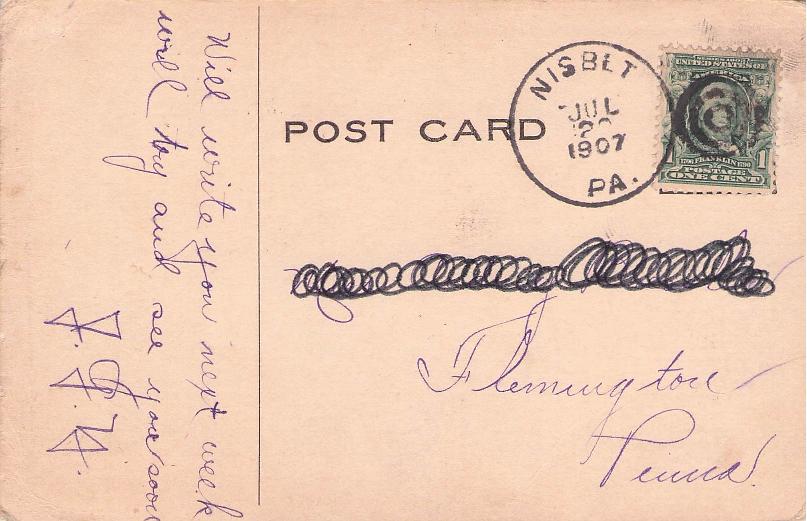 Will write you next week
will try and see you soon
POST CARD
NISBET
JUL
1907
PA.
SERIES 1902
UNITED STATES OF
AMERICA
1706 FRANKLIN 1790
POSTAGE 1
ONE CENT
Flemington
Penna.